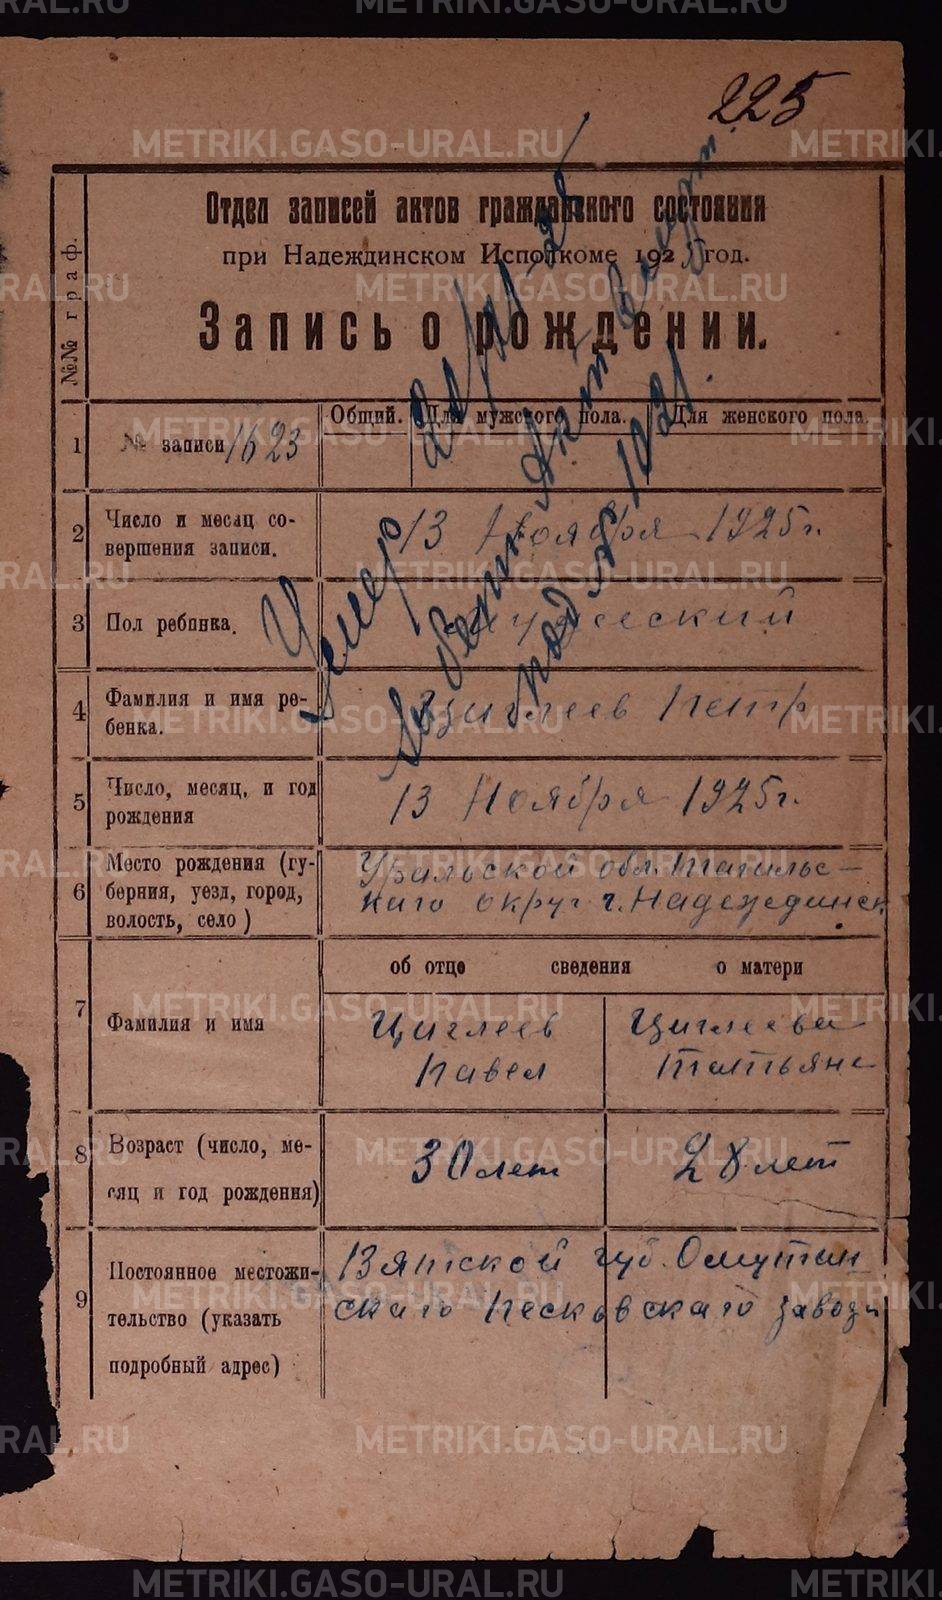 METRIKI.GASO-URAL.RU
225
METRIKI.GASO-URAL.RU METRIKI
№№ граф.
Отдел записей актов гражданского состояния
при Надеждинском Исполкоме 1925 год.
Запись о рождении.
Общий. Для мужского пола. Для женского пола.
1 № записи 1623
2 Число и месяц со-
вершения записи.
13 Ноября 1925 г.
3 Пол ребенка.
Мужеский
4 Фамилия и имя ре-
бенка.
Циглеев Петр
5 Число, месяц, и год
рождения
13 Ноября 1925 г.
6 Место рождения (гу-
берния, уезд, город,
волость, село)
Уральской обл. Тагильс-
каго округ г. Надеждинск
Умер
под № 1021.
об отце сведения о матери
7 Фамилия и имя
Циглеев
Павел
Циглеева
Татьяна
8 Возраст (число, ме-
сяц и год рождения)
30 лет
28 лет
9 Постоянное местожи-
тельство (указать
подробный адрес)
Вятской губ. Омутин
скаго Песковскаго завода
METRIKI.GASO-URAL.RU METRIKI